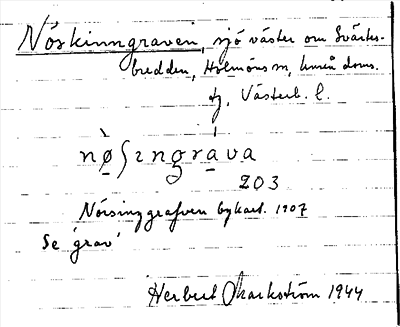 Nöskinngraven, sjö väster om Svärtes-
bredden, Holmöns sn, Umeå doms.
tg, Västerb. l.
nø̀ʃɪngráva
203
Nörsinggrafven bykart. 1907
Se 'grav'
Herbert Markström 1944